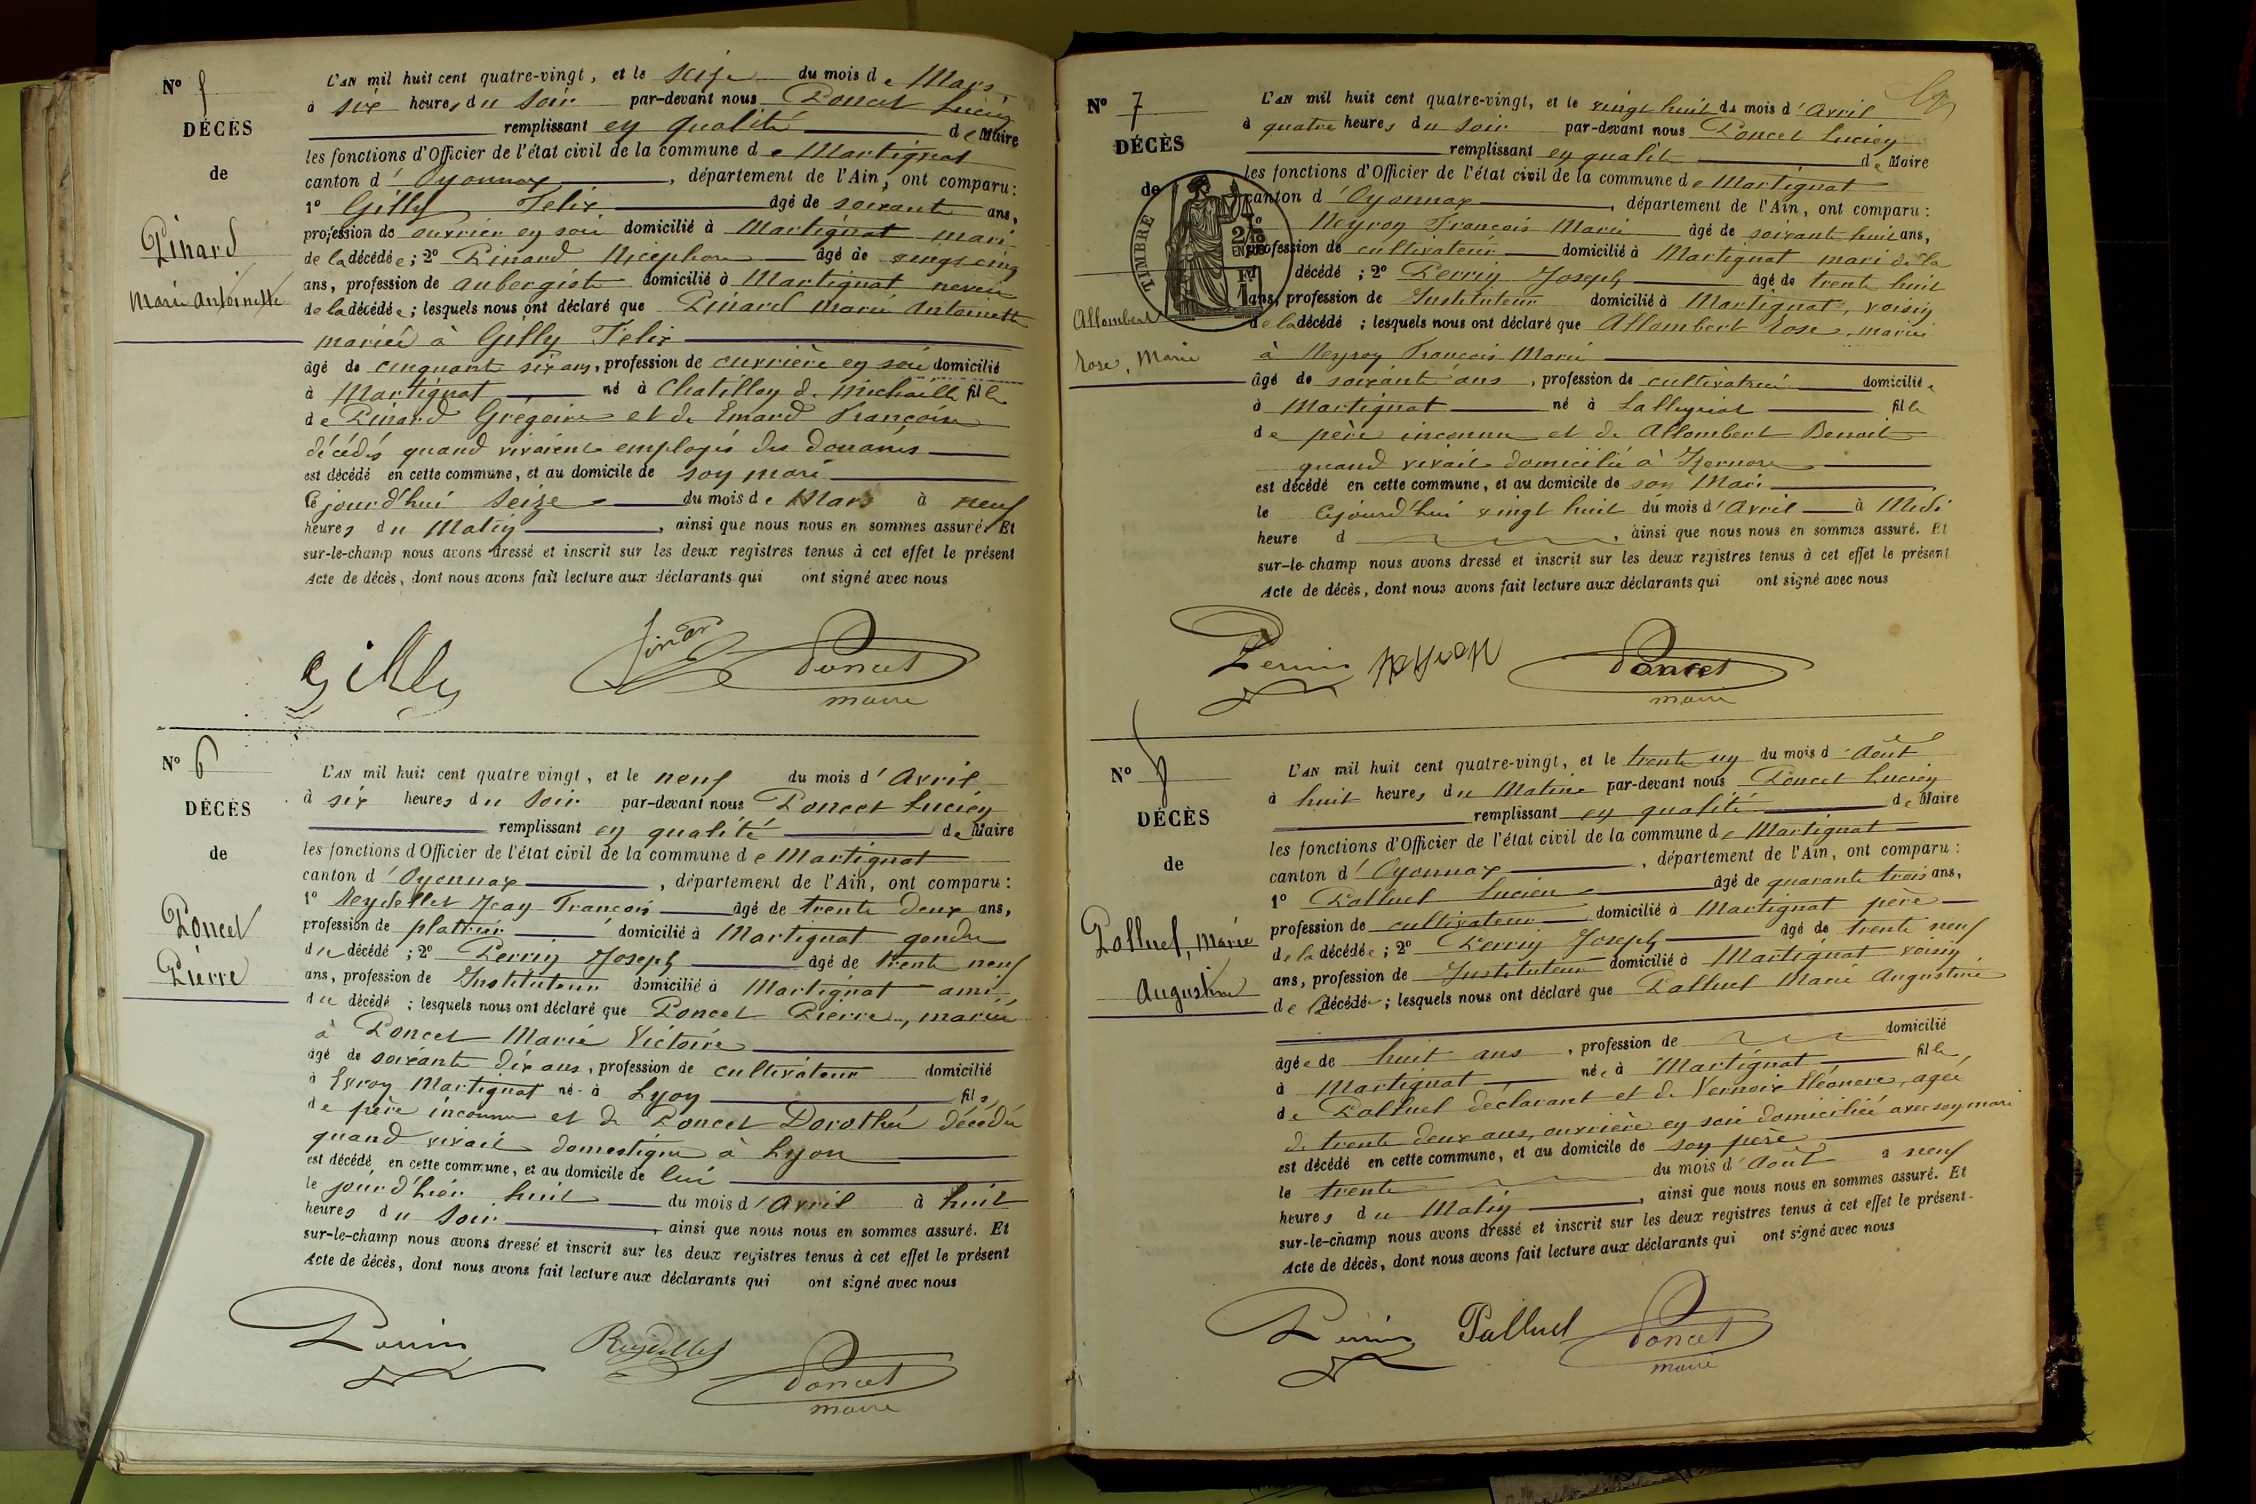 N° 5
DÉCÈS
de
Pinard
Marie Antoinette
L'AN mil huit cent quatre-vingt, et le seize du mois de Mars
à six heures du soir par-devant nous Poncet Lucien
remplissant en qualité de Maire
les fonctions d'Officier de l'état civil de la commune de Martignat
canton d'Oyonnax, département de l'Ain, ont comparu :
1° Gilly Félix âgé de soixante ans,
profession de ouvrier en soie domicilié à Martignat mari
de la décédée ; 2° Pinard Nicéphore âgé de vingt cinq
ans, profession de aubergiste domicilié à Martignat neveu
de la décédée ; lesquels nous ont déclaré que Pinard Marie Antoinette
mariée à Gilly Félix
âgé de cinquante six ans, profession de ouvrière en soie domicilié
à Martignat né à Chatillon de Michaille fille
de Pinard Grégoire et de Emard Françoise
décédés quand vivaient employés des douanes
est décédé en cette commune, et au domicile de son mari
le jourd'hui seize du mois de Mars à neuf
heures du Matin, ainsi que nous nous en sommes assuré. Et
sur-le-champ nous avons dressé et inscrit sur les deux registres tenus à cet effet le présent
Acte de décès, dont nous avons fait lecture aux déclarants qui ont signé avec nous
Gilly Pinard Poncet
maire
N° 6
DÉCÈS
de
Poncet
Pierre
L'AN mil huit cent quatre vingt, et le neuf du mois d'Avril
à six heures du soir par-devant nous Poncet Lucien
remplissant en qualité de Maire
les fonctions d'Officier de l'état civil de la commune de Martignat
canton d'Oyonnax, département de l'Ain, ont comparu :
1° Reydellet Jean François âgé de trente deux ans,
profession de platrier domicilié à Martignat gendre
du décédé ; 2° Perrin Joseph âgé de trente neuf
ans, profession de Instituteur domicilié à Martignat ami
du décédé ; lesquels nous ont déclaré que Poncet Pierre, marié
à Poncet Marie Victoire
âgé de soixante dix ans, profession de cultivateur domicilié
à Evron Martignat né à Lyon fils
de père inconnu et de Poncet Dorothée décédée
quand vivait domestique à Lyon
est décédé en cette commune, et au domicile de lui
le jourd'hier huit du mois d'Avril à huit
heures du soir, ainsi que nous nous en sommes assuré. Et
sur-le-champ nous avons dressé et inscrit sur les deux registres tenus à cet effet le présent
Acte de décès, dont nous avons fait lecture aux déclarants qui ont signé avec nous
Perrin Reydellet Poncet
maire
N° 7
DÉCÈS
de
TIMBRE
Allombert
Rose, Marie
L'AN mil huit cent quatre-vingt, et le vingt huit du mois d'Avril
à quatre heures du soir par-devant nous Poncet Lucien
remplissant en qualité de Maire
les fonctions d'Officier de l'état civil de la commune de Martignat
canton d'Oyonnax, département de l'Ain, ont comparu :
1° Neyron François Marie âgé de soixante huit ans,
profession de cultivateur domicilié à Martignat mari de la
décédé ; 2° Perrin Joseph âgé de trente huit
ans, profession de Instituteur domicilié à Martignat, voisin
de la décédé ; lesquels nous ont déclaré que Allombert Rose, mariée
à Neyron François Marie
âgé de soixante ans, profession de cultivatrice domiciliée
à Martignat né à Lalleyriat fille
de père inconnu et de Allombert Benoite
quand vivait domiciliée à Izernore
est décédé en cette commune, et au domicile de son Mari
le cejourd'hui vingt huit du mois d'Avril à Midi
heure d, ainsi que nous nous en sommes assuré. Et
sur-le-champ nous avons dressé et inscrit sur les deux registres tenus à cet effet le présent
Acte de décès, dont nous avons fait lecture aux déclarants qui ont signé avec nous
Perrin Neyron Poncet
maire
N° 8
DÉCÈS
de
Palluel, Marie
Augustine
L'AN mil huit cent quatre-vingt, et le trente un du mois d'Août
à huit heures du Matin par-devant nous Poncet Lucien
remplissant en qualité de Maire
les fonctions d'Officier de l'état civil de la commune de Martignat
canton d'Oyonnax, département de l'Ain, ont comparu :
1° Palluel Lucien âgé de quarante trois ans,
profession de cultivateur domicilié à Martignat père
de la décédée ; 2° Perrin Joseph âgé de trente neuf
ans, profession de Instituteur domicilié à Martignat voisin
de la décédée ; lesquels nous ont déclaré que Palluel Marie Augustine
âgée de huit ans, profession de domicilié
à Martignat née à Martignat fille
de Palluel déclarant et de Vernoix Eléonore, agée
de trente deux ans, ouvrière en soie domiciliée avec son mari
est décédé en cette commune, et au domicile de son père
le trente du mois d'Août à neuf
heures du Matin, ainsi que nous nous en sommes assuré. Et
sur-le-champ nous avons dressé et inscrit sur les deux registres tenus à cet effet le présent
Acte de décès, dont nous avons fait lecture aux déclarants qui ont signé avec nous
Perrin Palluel Poncet
maire